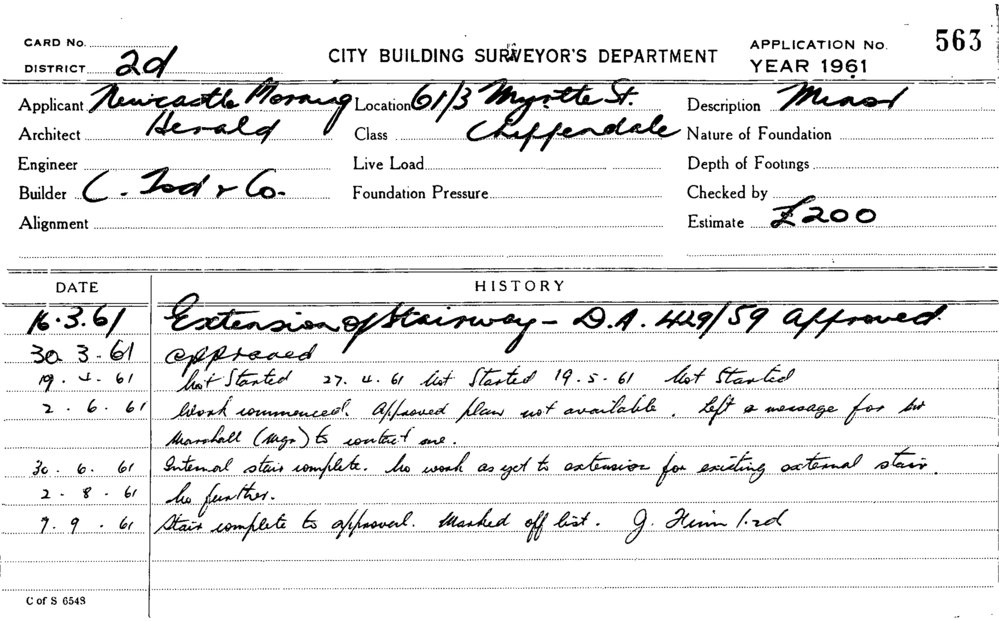 CARD No.
DISTRICT 2d
CITY BUILDING SURVEYOR'S DEPARTMENT
APPLICATION No. 563
YEAR 1961
Applicant Newcastle Morning Herald
Location 61/3 Myrtle St. Chippendale
Description Minor
Architect
Class
Nature of Foundation
Engineer
Live Load
Depth of Footings
Builder C. Tod & Co.
Foundation Pressure
Checked by
Alignment
Estimate £200
DATE HISTORY
16.3.61 Extension of Stairway - D.A. 429/59 approved.
30 3.61 approved
19.4.61 Not Started 27.4.61 Not Started 19.5.61 Not Started
2.6.61 Work commenced. Approved plan not available. Left a message for Mr
Marshall (Mgr) to contact me.
30.6.61 Internal stair complete. No work as yet to extension for existing external stair.
2.8.61 No further.
7.9.61 Stair complete to approval. Marked off list. J.
C of S 6548